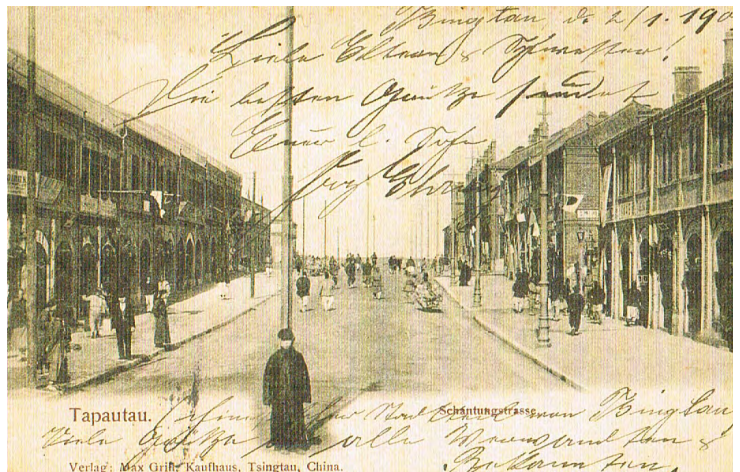 Tsingtau, d. 2/1. 190
Liebe Eltern & Schwester!
Die besten Grüße sendet
Euer l. Sohn
Tapautau. Schantungstrasse
von Tsingtau
Viele Grüße an alle Verwandten &
Bekannten
Verlag: Max Grill, Kaufhaus, Tsingtau, China.